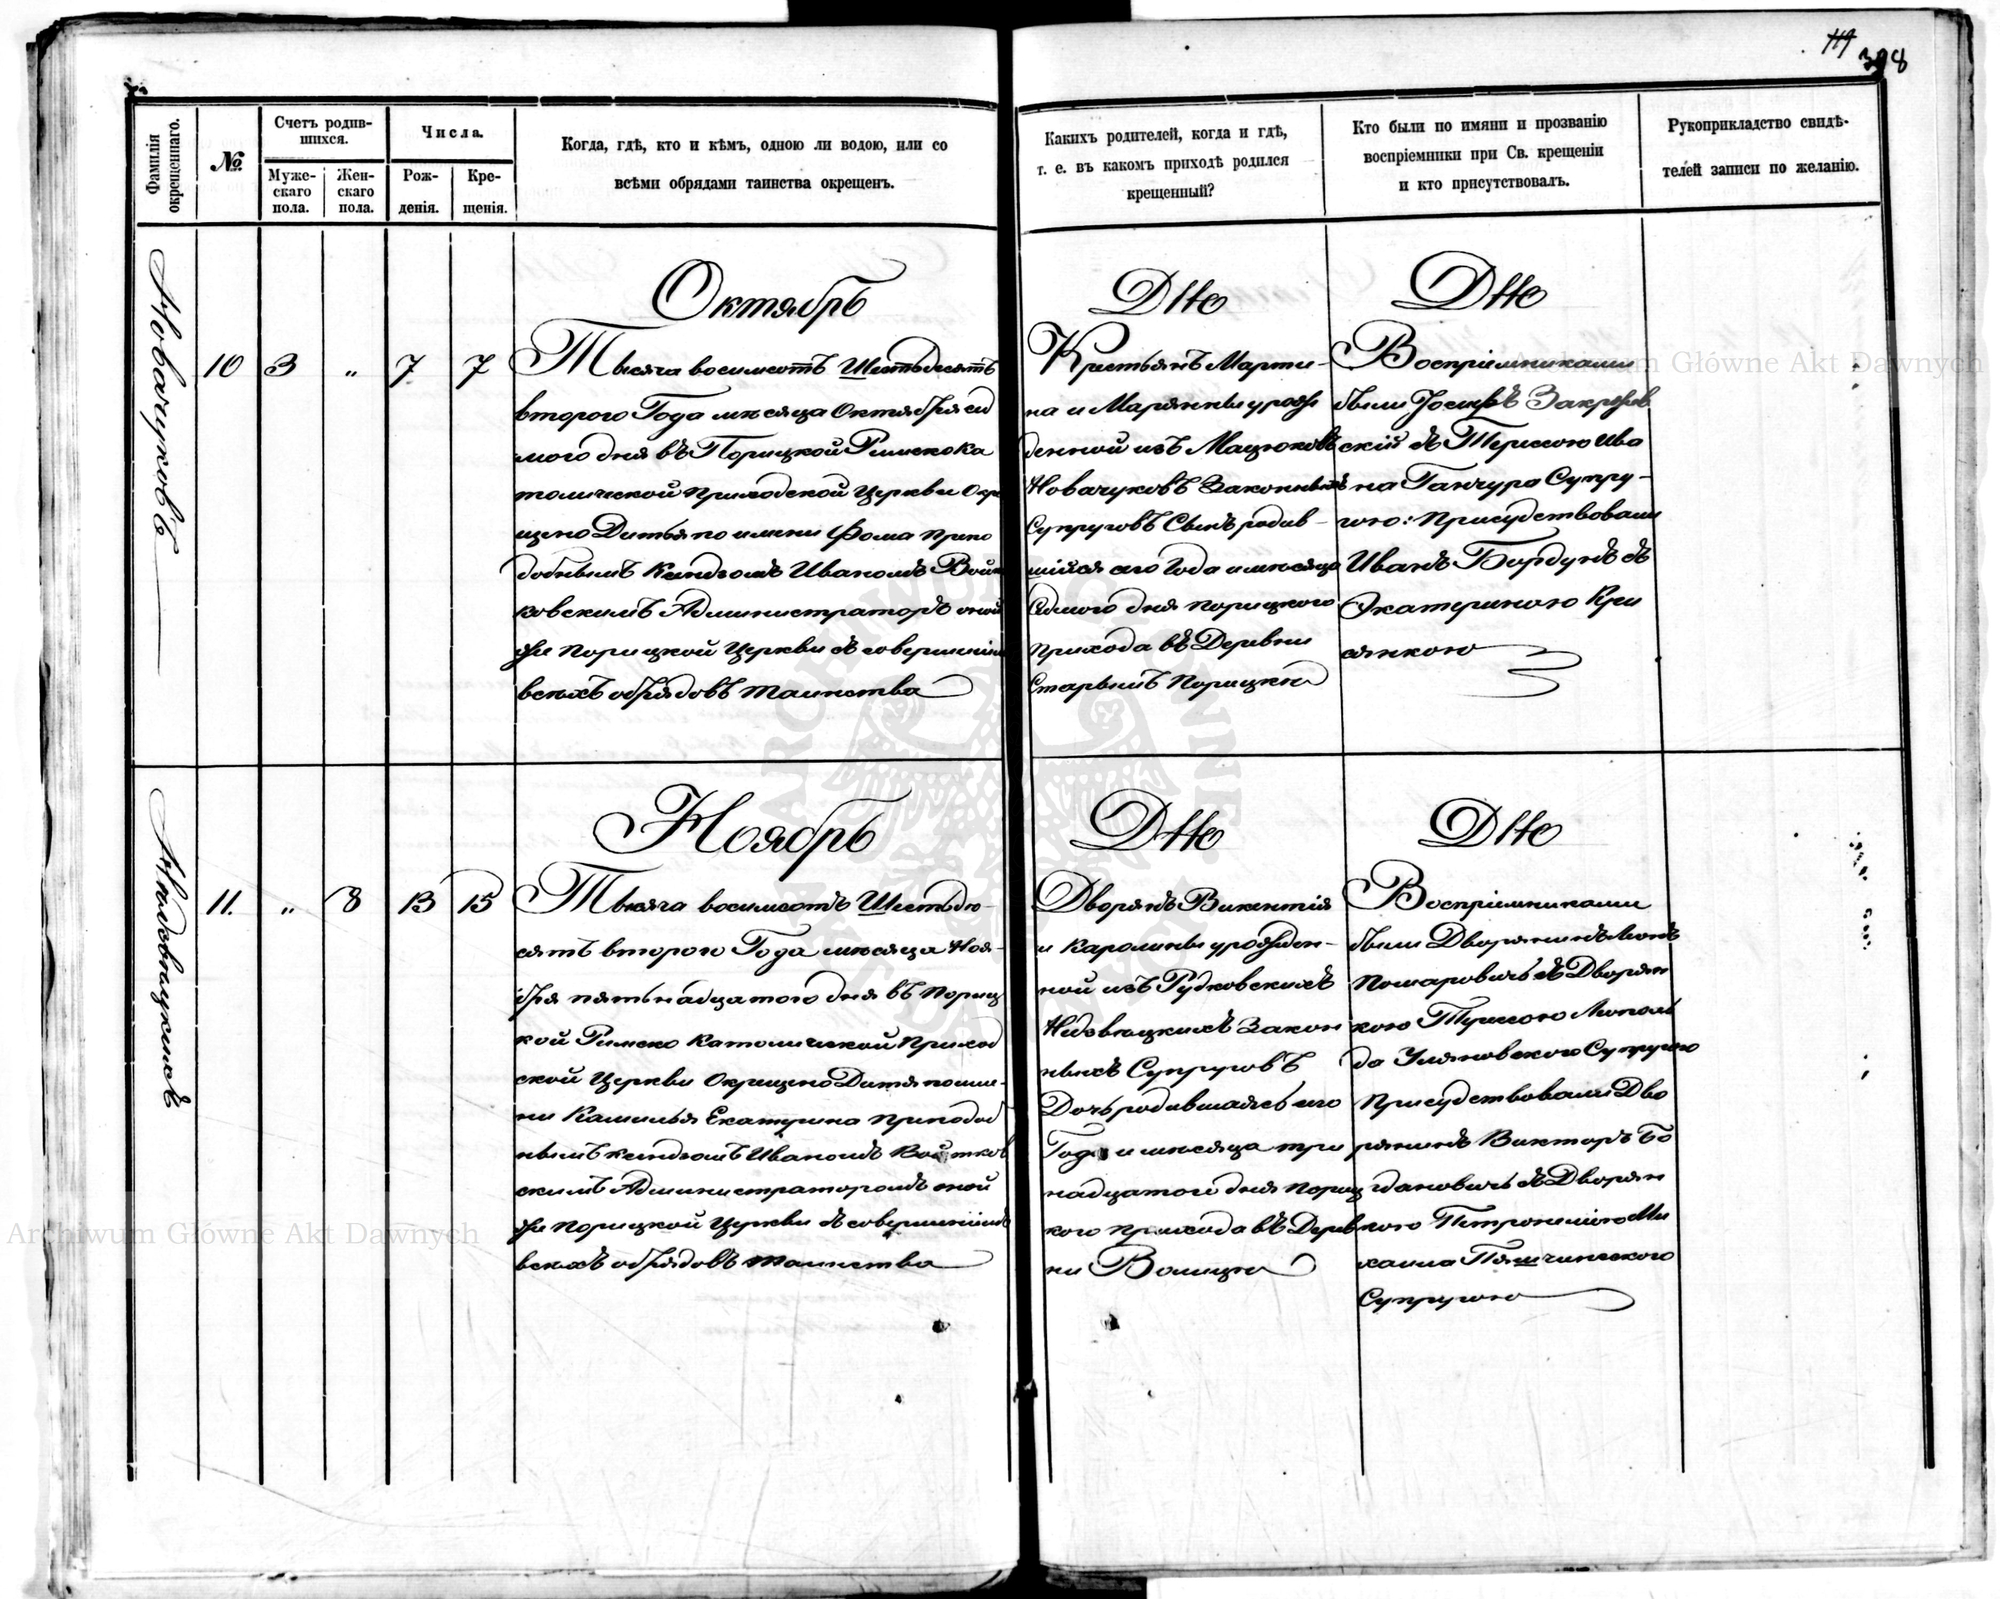 119
398
Фамилія окрещеннаго.
№
Счетъ родив-
шихся.
Муже-
скаго
пола.
Жен-
скаго
пола.
Числа.
Рож-
денія.
Кре-
щенія.
Когда, гдѣ, кто и кѣмъ, одною ли водою, или со
всѣми обрядами таинства окрещенъ.
Какихъ родителей, когда и гдѣ,
т. е. въ какомъ приходѣ родился
крещенный?
Кто были по имяни и прозванію
воспріемники при Св. крещеніи
и кто присутствовалъ.
Рукоприкладство свидѣ-
телей записи по желанію.
Новачуковъ
10
3
"
7
7
Октябрь
Тысяча восимсотъ Шестьдесятъ
второго Года мѣсяца Октября сед
мого дня въ Порицкой Римско Ка
толической Приходской Церкви Окре
щено Дитя по имени Фома Препо
добнымъ Ксендзомъ Иваномъ Войт
ковскимъ Администраторъ оной
же Порицкой Церкви съ совершеніем
всехъ обрядовъ таинства
Крестьянъ Марти-
на и Марянны урож
денной изъ Мацюковъ
Новачуковъ Законныхъ
Супруговъ Сынъ родив-
шійся сего Года и мѣсяца
Седмого дня Порицкого
Прихода въ Деревни
Старымъ Порицкѣ
Воспріемниками
были Іосифъ Закржев
скій съ Терезою Ива
на Ганчура Супру-
гою: Присудствовали
Иванъ Бордунъ съ
Екатериною Кри
сянкою
11.
"
8
13
15
Ноябрь
Тысяча восимсотъ Шестьде-
сятъ второго Года мѣсяца Ноя-
бря пятьнадцатого дня въ Пориц
кой Римско Католической Приход
ской Церкви Окрещено Дитя по име-
ни Камилья Екатерина Преподоб
нымъ ксендзомъ Иваномъ Войтков
скимъ Администраторомъ оной
же Порицкой Церкви съ совершеніемъ
всехъ обрядовъ таинства
Дворянъ Викентія
и Каролины урожден-
ной изъ Рудковскихъ
Недзвецкихъ Закон
ныхъ Супруговъ
Дочь родившаясь сего
Года и мѣсяца три
надцатого дня Пориц
кого Прихода въ Дерев
ни Волицѣ
Воспріемниками
были Дворянинъ Леонъ
съ Дворян
кою Терезою Леополь
да Уляновского Супругою
Присудствовали Дво
рянинъ Викторъ Бо
гдановичь съ Дворян
кою Петронелію Ми
хаила
Супругою
Archiwum Główne Akt Dawnych
Archiwum Główne Akt Dawnych